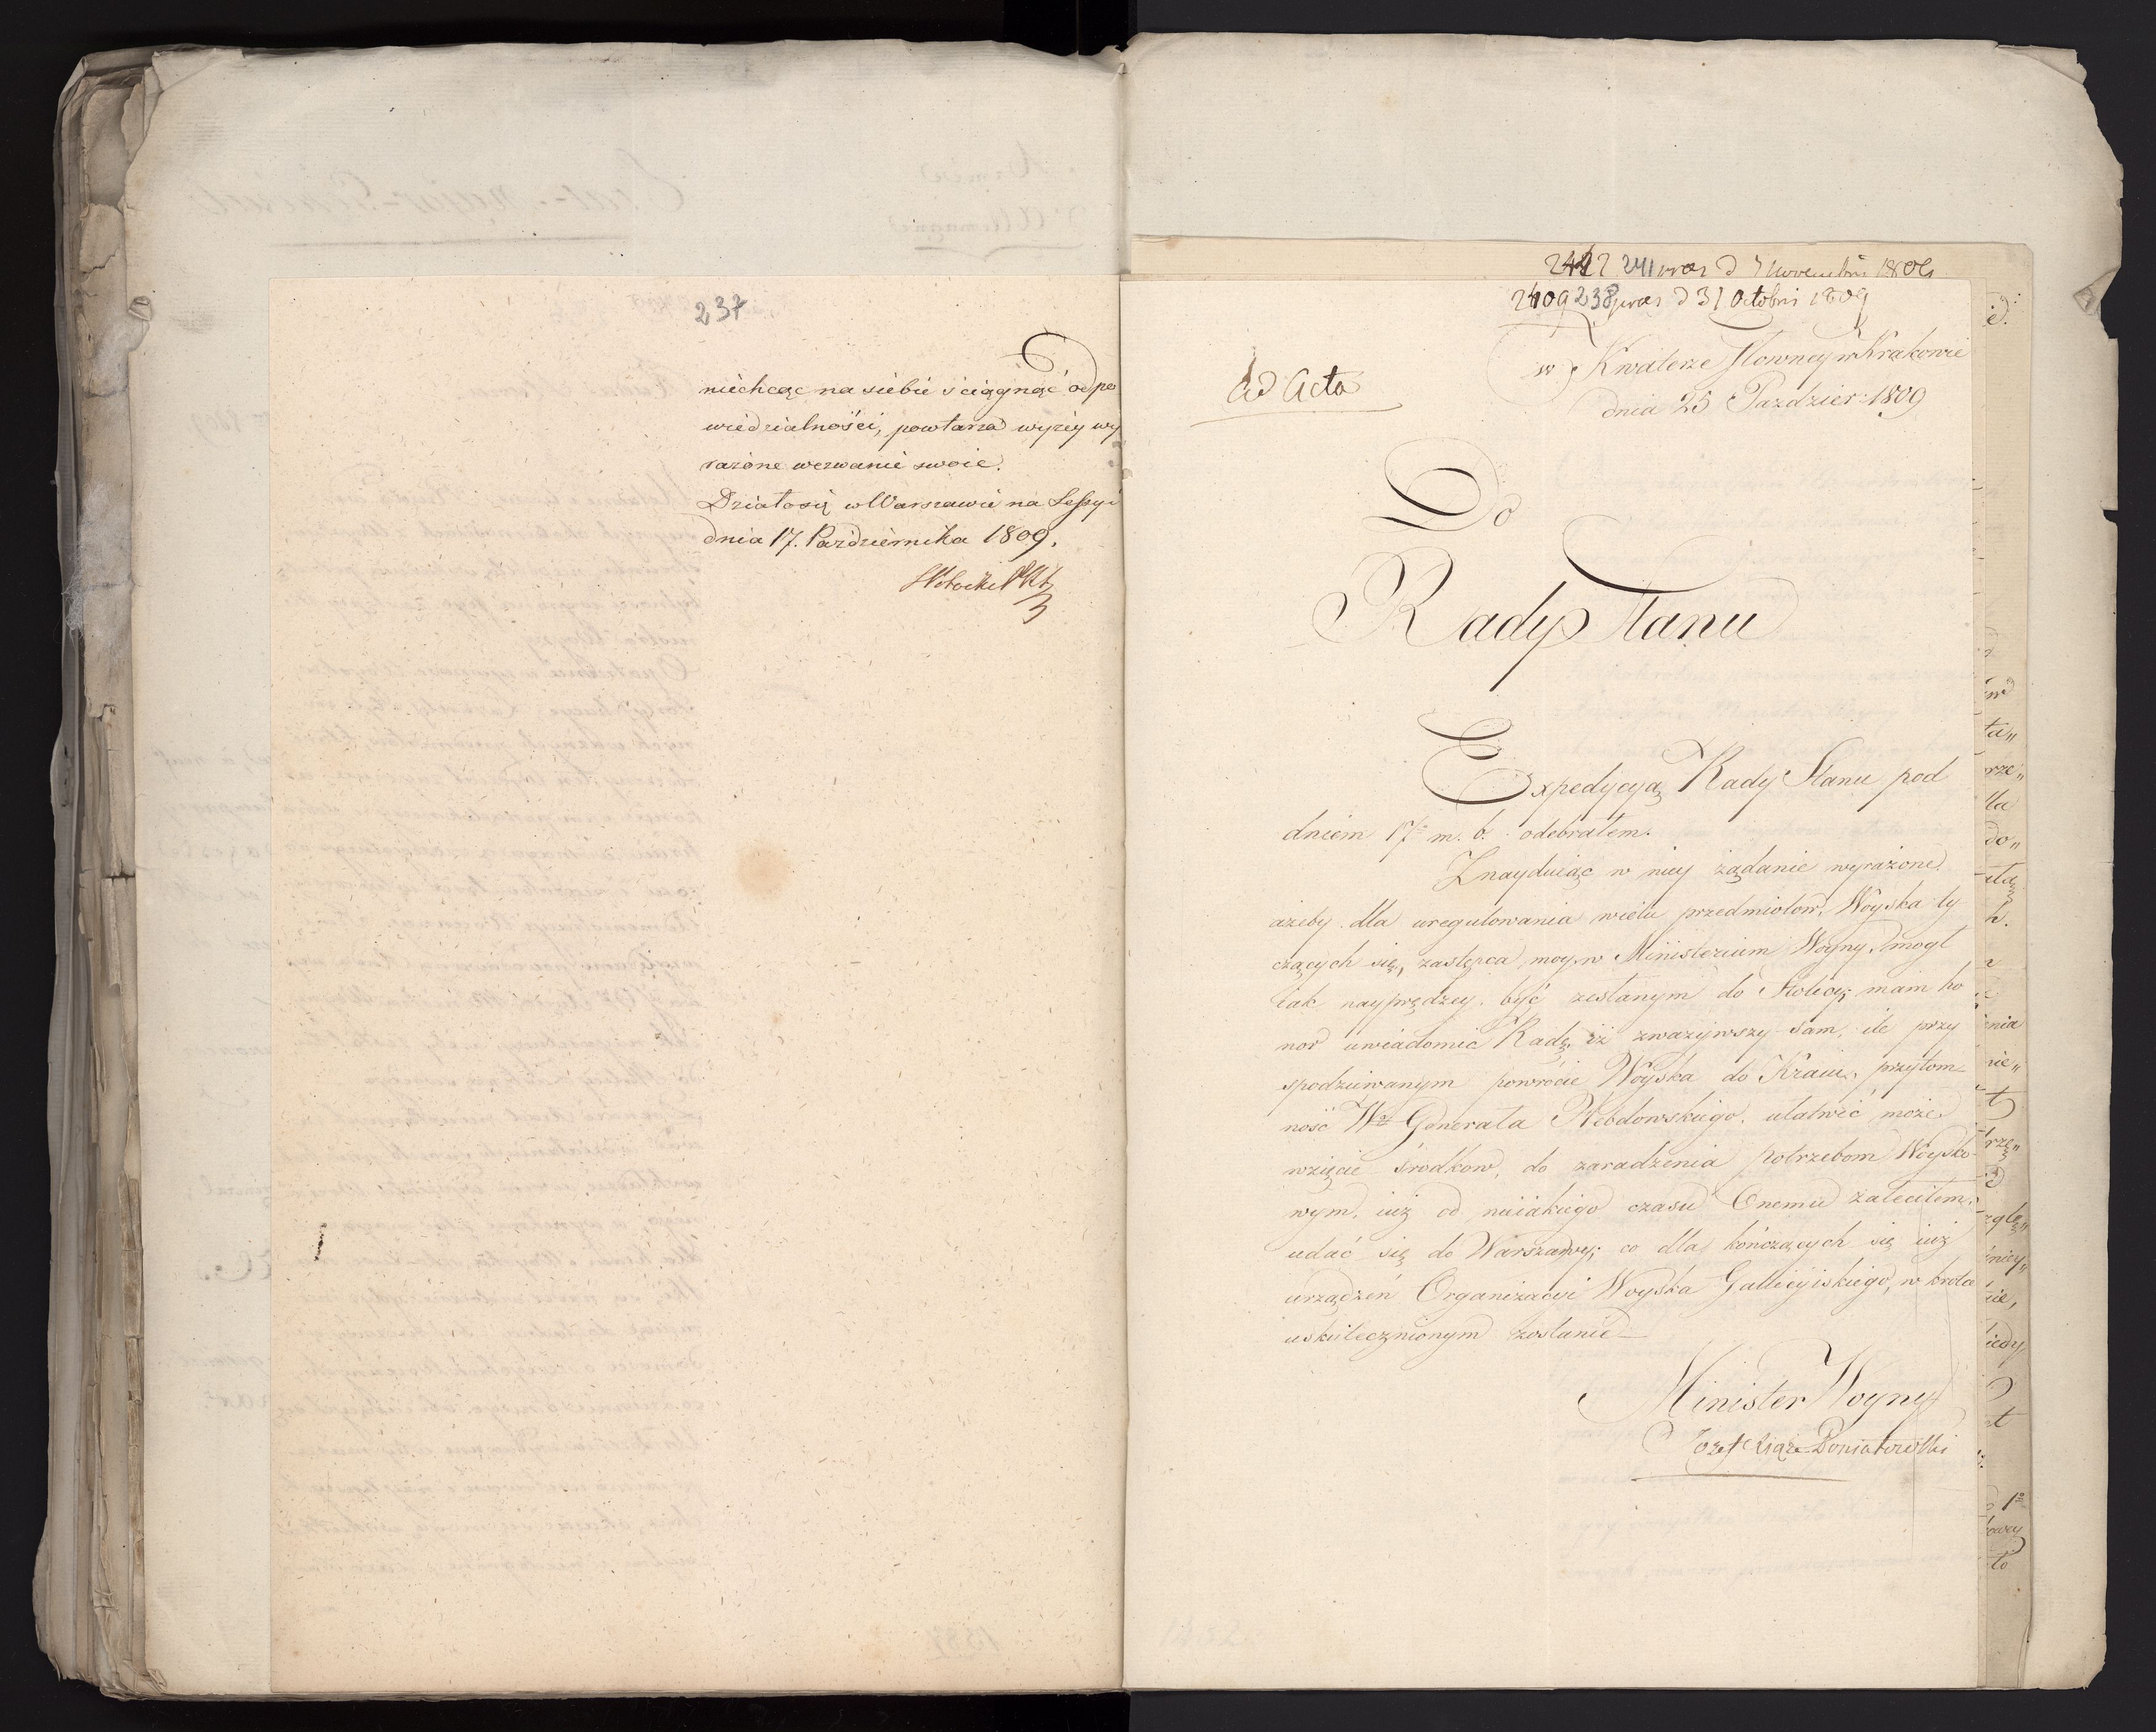 237
niechcąc na siebie ściągnąć odpo
wiedzialności, powtarza wyżey wy
rażone wezwanie swoie.
Działo się w Warszawie na Sessyi
dnia 17. Października 1809.
2412 241 præs d 7 Novembris 1809
2409 238 præs d 31 Octobris 1809
ad Acta
w Kwaterze Głowney w Krakowie
dnia 25 Paździer: 1809
Do
Rady Stanu
Expedycyą Rady Stanu pod
dniem 17 m. b. odebrałem.
Znayduiąc w niey żądanie wyrażone
ażeby dla uregulowania wielu przedmiotow, Woyska ty
czących się, zastępca moy w Ministerium Woyny mogł
iak nayprędzey być zesłanym do Stolicy; mam ho
nor uwiadomić Radę, iż zważywszy sam, ile przy
spodziewanym powrocie Woyska do Kraiu, przytom
ność Wo Generała Webdowskiego ułatwić może
wzięcie środkow, do zaradzenia potrzebom Woysko
wym, iuż od nieiakiego czasu Onemu zaleciłem,
udać się do Warszawy; co dla kończących się iuż
urządzeń Organizacyi Woyska Gallicyiskiego, w krotce
uskutecznionym zostanie
Minister Woyny
Jozef Xiąże Poniatowski